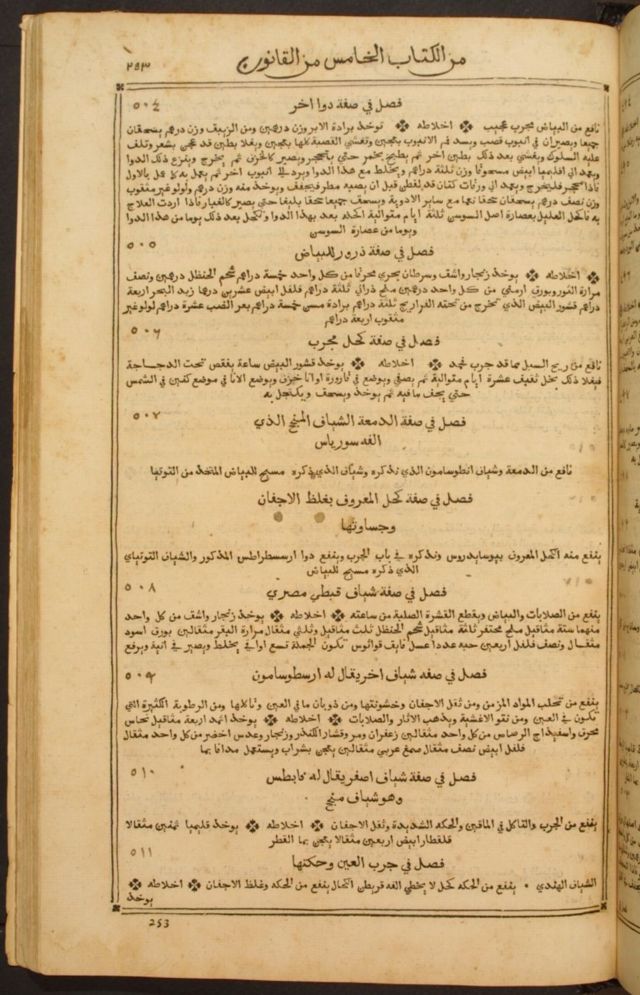 من الكتاب الخامس من القانون ٢٥٣
فصل في صفة دوا اخر ٥٠٤
نافع من البياض مجرب عجيب ❖ اخلاطه ❖ توخذ برادة الابر وزن درهمين ومن الزيبق وزن درهم يسحقان
جميعا ويصيران في انبوب قصب ويسد فم الانبوب بعجين وتغشي القصبة كلها بعجين ويغلا بطين قد عجن بشعر وتلف
عليه السلوك ويغشي بعد ذلك بطين اخر ثم يطبخ بجمر حتي يتحجر ويصير كالخزف ثم يخرج ويفزع ذلك الدوا
ويعمد الي اقليميا ابيض مسحوقا وزن ثلثة دراهم ويخلط مع هذا الدوا ويرد الي انبوب اخر ثم يعمل به كما عمل بالاول
فاذا تحجر فليخرج ويعمد الي ورقات كتان قد لقطن قبل ان يصيبه مطر فيجفف ويوخذ منه وزن درهم ولولو غير مثقوب
وزن نصف درهم يسحقان سحقا نعما مع ساير الادوية ويسحق جميعا سحقا بليغا حتي يصير كالغبار فاذا اردت العلاج
به فاكحل العليل بعصارة اصل السوسن ثلثة ايام متوالية اكحله بعد بهذا الدوا وتكحل بعد ذلك يوما من هذا الدوا
ويوما من عصارة السوسن
فصل في صفة ذرور للبياض ٥٠٥
❖ اخلاطه ❖ يوخذ زنجار واشق وسرطان بحري محرقا من كل واحد خمسة دراهم شحم الحنظل درهمين ونصف
مرارة الثور وبورق ارمني من كل واحد درهمين ملح دراني ثلثة دراهم فلفل ابيض عشرين درهما زبد البحر اربعة
دراهم قشور البيض الذي تخرج من تحته الفراريج ثلثة دراهم برادة مسن خمسة دراهم بعر الضب عشرة دراهم لولو غير
مثقوب اربعة دراهم
فصل في صفة كحل مجرب ٥٠٦
نافع من ريح السبل مما قد جرب فحمد ❖ اخلاطه ❖ يوخذ قشور البيض ساعة يفقص تحت الدجاجة
فيغلا ذلك بخل ثقيف عشرة ايام متوالية ثم يصفي ويوضع في قارورة او انا خزف ويوضع الانا في موضع كنين في الشمس
حتي يجف ما فيه ثم يوخذ ويسحق ويكتحل به
فصل في صفة الدمعة الشياف المنجح الذي ٥٠٧
الفه سورياس
نافع من الدمعة وشياف انطوسامون الذي نذكره وشياف الذي نذكره مسيح للبياض المتخذ من التوتيا
فصل في صفة كحل المعروف بغلظ الاجفان
وجساوتها
ينفع منه الكحل المعروف بيوسايدروس ونذكره في باب الجرب وينفع دوا ارسسطراطس المذكور والشياف التوتياي
الذي ذكره مسيح للبياض
فصل في صفة شياف قبطي مصري ٥٠٨
ينفع من الصلابات والبياض ويقطع القشرة الصلبة من ساعته ❖ اخلاطه ❖ يوخذ زنجار واشق من كل واحد
منهما ستة مثاقيل ملح محتفر ثلثة مثاقيل شحم الحنظل ثلث مثاقيل وثلثي مثقال مرارة البقر مثقالين بورق اسود
مثقال ونصف فلفل اربعين حبه عددا عسل فايق قواثوس تكون الجملة تسع اواقي يخلط ويصير في انية ويرفع
فصل في صفة شياف اخر يقال له ارسطوسامون ٥٠٩
ينفع من تحلب المواد المزمن ومن ثقل الاجفان وخشونتها ومن ذوبان ماق العين وتاكلها ومن الرطوبة الكثيرة التي
تكون في العين ومن نتو الاغشية ويذهب الاثار والصلابات ❖ اخلاطه ❖ يوخذ اثمد اربعة مثاقيل نحاس
محرق واسفيذاج الرصاص من كل واحد مثقالين زعفران ومر وقشار الكندر وزنجار وعدس اخضر من كل واحد مثقال
فلفل ابيض نصف مثقال صمغ عربي مثقالين يعجن بشراب ويستعمل مدافا بما
فصل في صفة شياف اصفر يقال له مابطس ٥١٠
وهو شياف منجح
ينفع من الجرب والتاكل في الماقين والحكه الشديدة وثقل الاجفان ❖ اخلاطه ❖ يوخذ قليميا ثمنين مثقالا
قلقطار ابيض اربعين مثقالا يعجن بما القطر
فصل في جرب العين وحكتها ٥١١
الشياف الهندي * ينفع من الحكه كحل لا يخطي الفه قريطن اكتحال ينفع من الحكه وغلظ الاجفان ❖ اخلاطه ❖
يوخذ
253